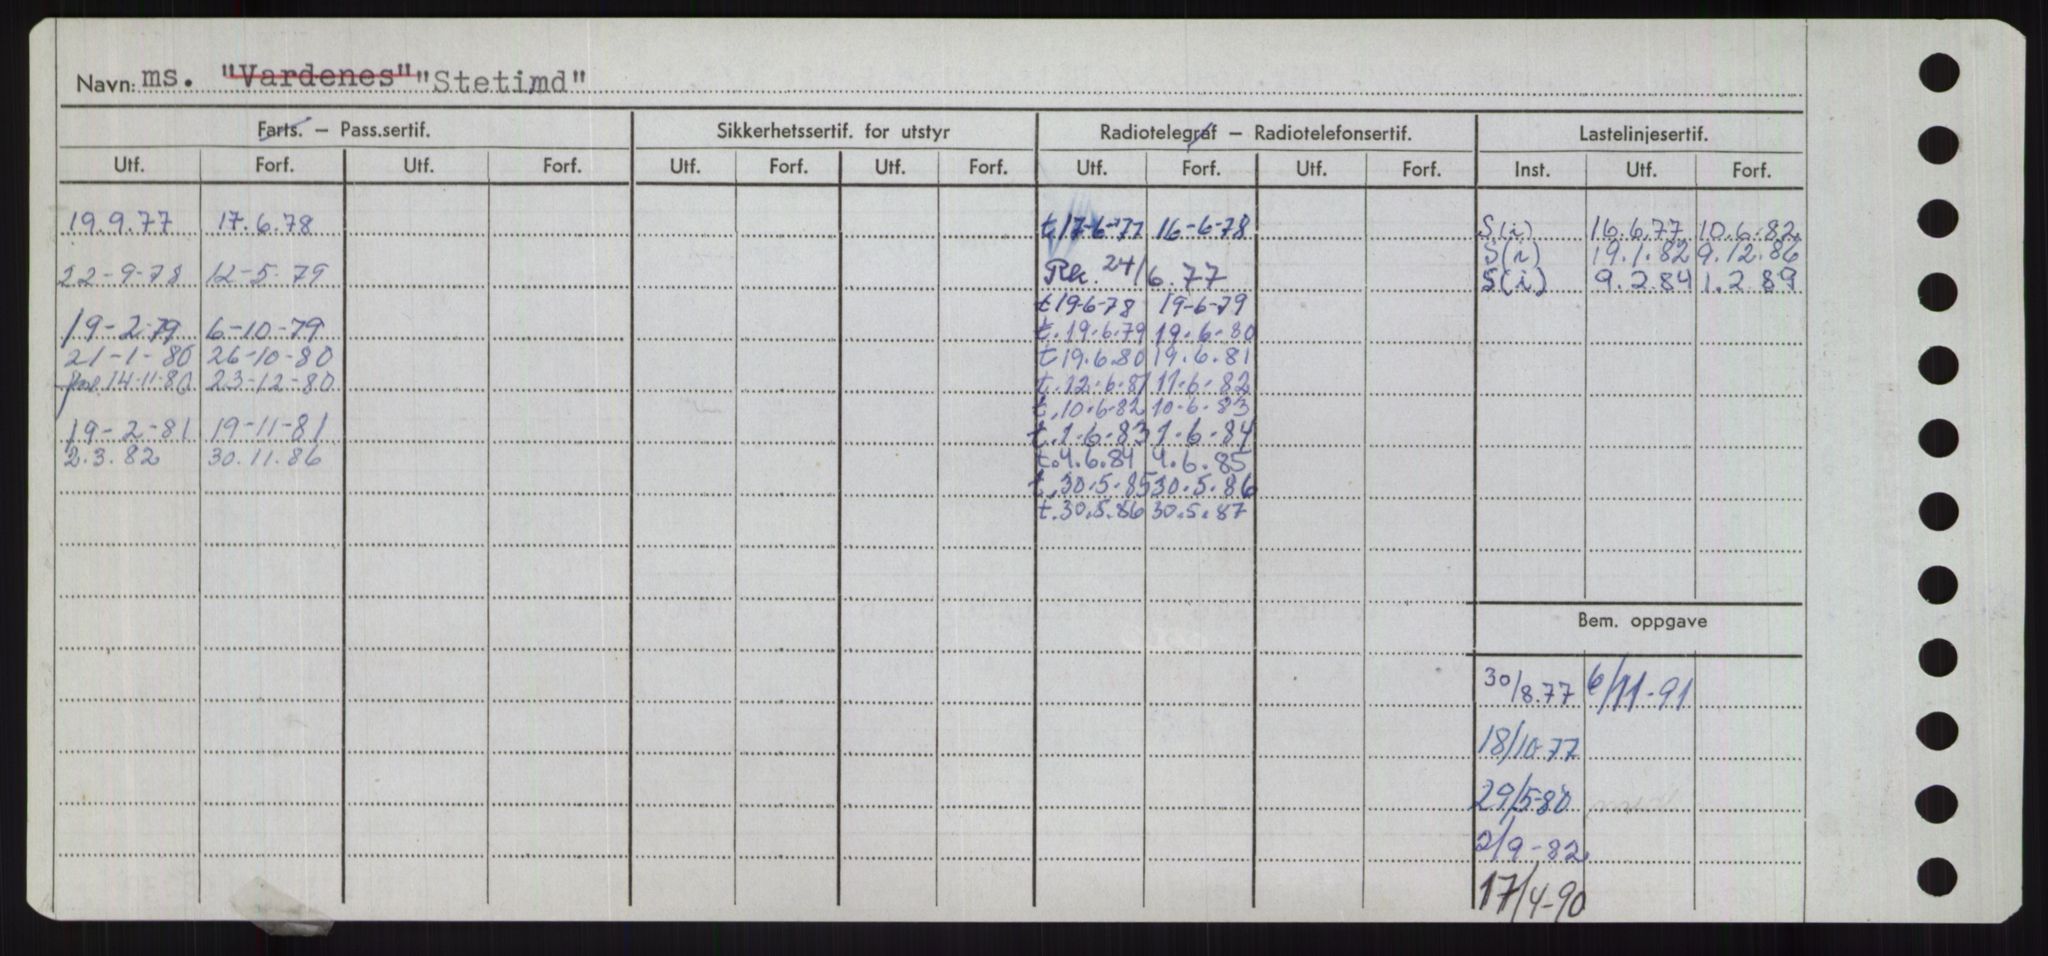 Navn: ms. "Vardenes" "Stetimd"
Farts. — Pass.sertif. Sikkerhetssertif. for utstyr Radiotelegraf — Radiotelefonsertif. Lastelinjesertif.
Utf. Forf. Utf. Forf. Utf. Forf. Utf. Forf. Utf. Forf. Utf. Forf. Inst. Utf. Forf.
19.9.77 17.6.78 t.17-6-77 16-6-78 S(i) 16.6.77 10.6.82
S(i) 19.1.82 9.12.86
22-9-78 12-5-79 24/6.77 S(i) 9.2.84 1.2.89
t19-6-78 19-6-79
19-2-79 6-10-79 t.19.6.79 19.6.80
21-1-80 26-10-80 t19.6.80 19.6.81
14-11-80 23-12-80 t.12.6.81 11.6.82
t.10.6.82 10.6.83
19-2-81 19-11-81 t.1.6.83 1.6.84
2.3.82 30.11.86 t.4.6.84 4.6.85
t.30.5.85 30.5.86
t.30.5.86 30.5.87
Bem. oppgave
30/8.77 6/11-91
18/10-77
29/5-80
2/9-82
17/4-90